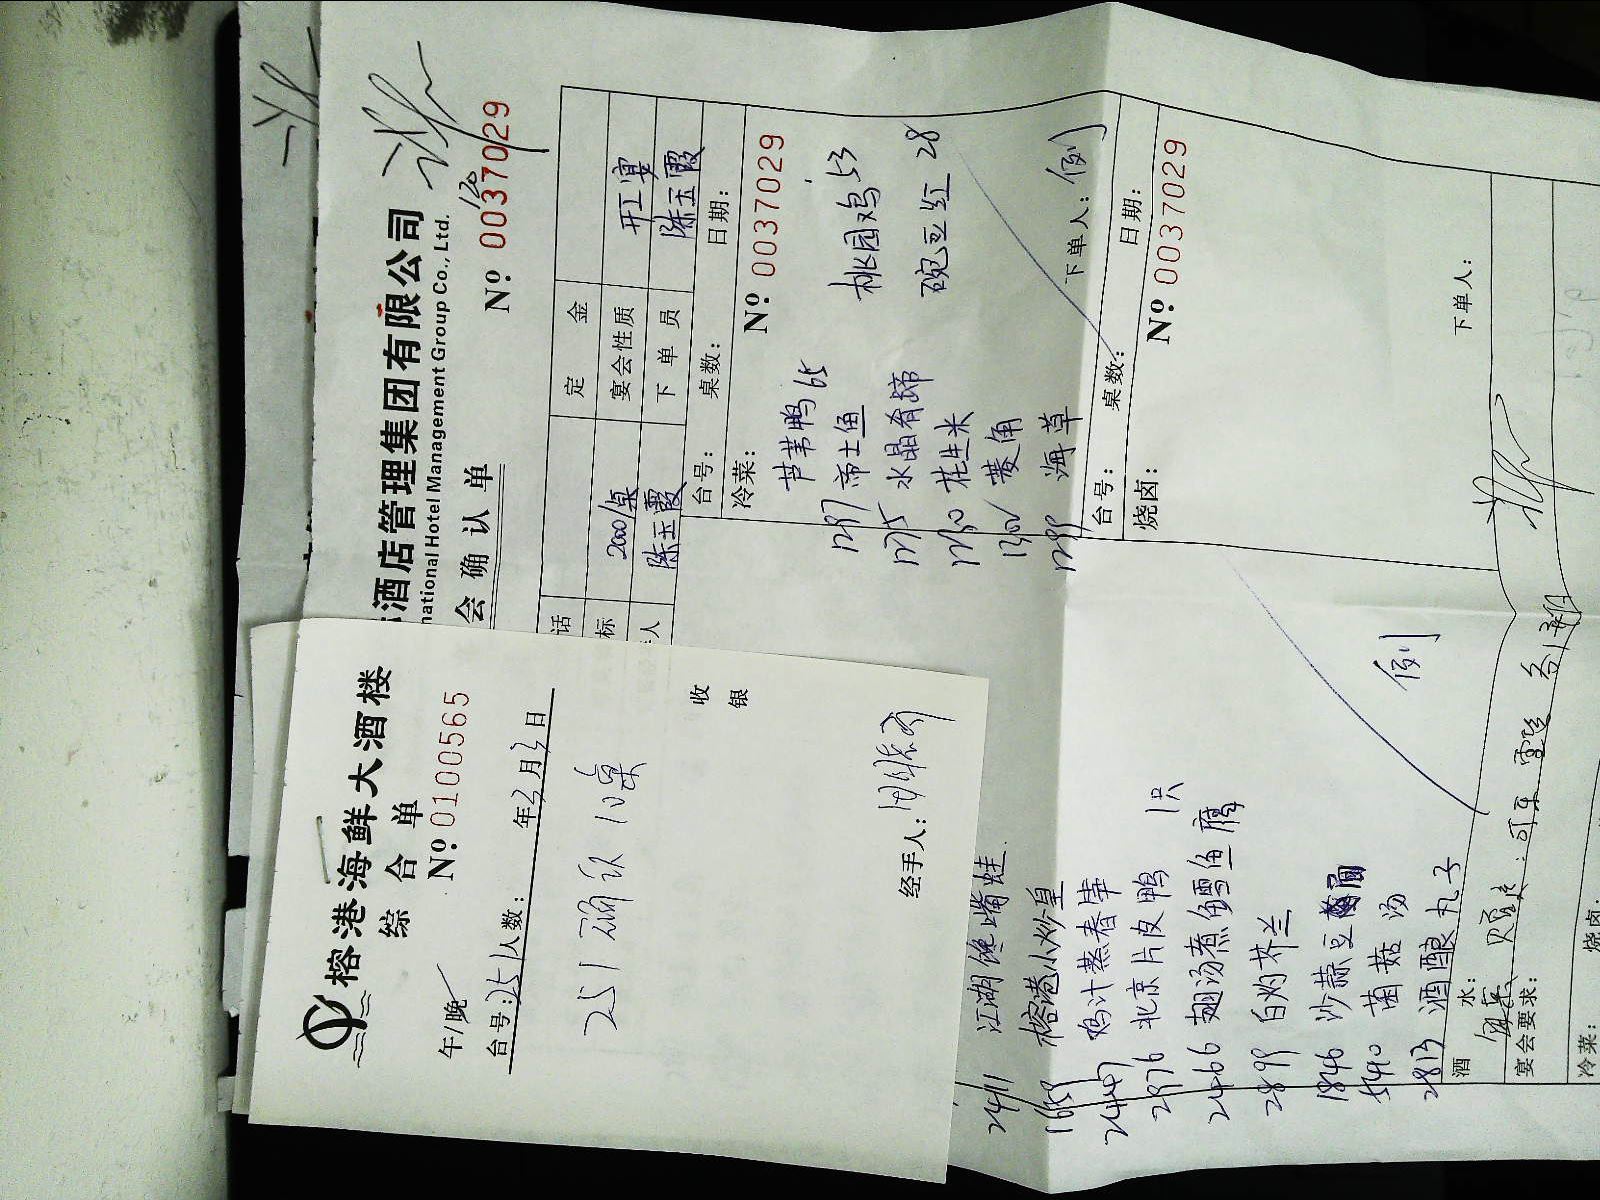 酒店管理集团有限公司
national Hotel Management Group Co., Ltd.
会确认单
Nº 0037029
120
定金
话
宴会性质
开工宴
标
2000/桌
下单员
陈玉霞
人
陈玉霞
台号：
桌数：
日期：
冷菜：
Nº 0037029
芦苇鸭 65
桃园鸡 53
水晶肴蹄
豌豆红 28
花生米
菱角
海草
下单人：例
台号：
桌数：
日期：
烧卤：
Nº 0037029
下单人：
榕港海鲜大酒楼
综合单
Nº 0100565
午/晚
台号：251
人数：
年2月3日
251
10桌
收银
经手人：
2411 江湖馋嘴蛙
榕港小炒皇
2447 鸡汁蒸春笋
2976 北京片皮鸭 1只
2466 翅汤煮鳕鱼腐
2899 白灼芥兰
1846
5490 菌菇汤
2813 酒酿丸子
例
酒水：
宴会要求：
冷菜：
烧卤：